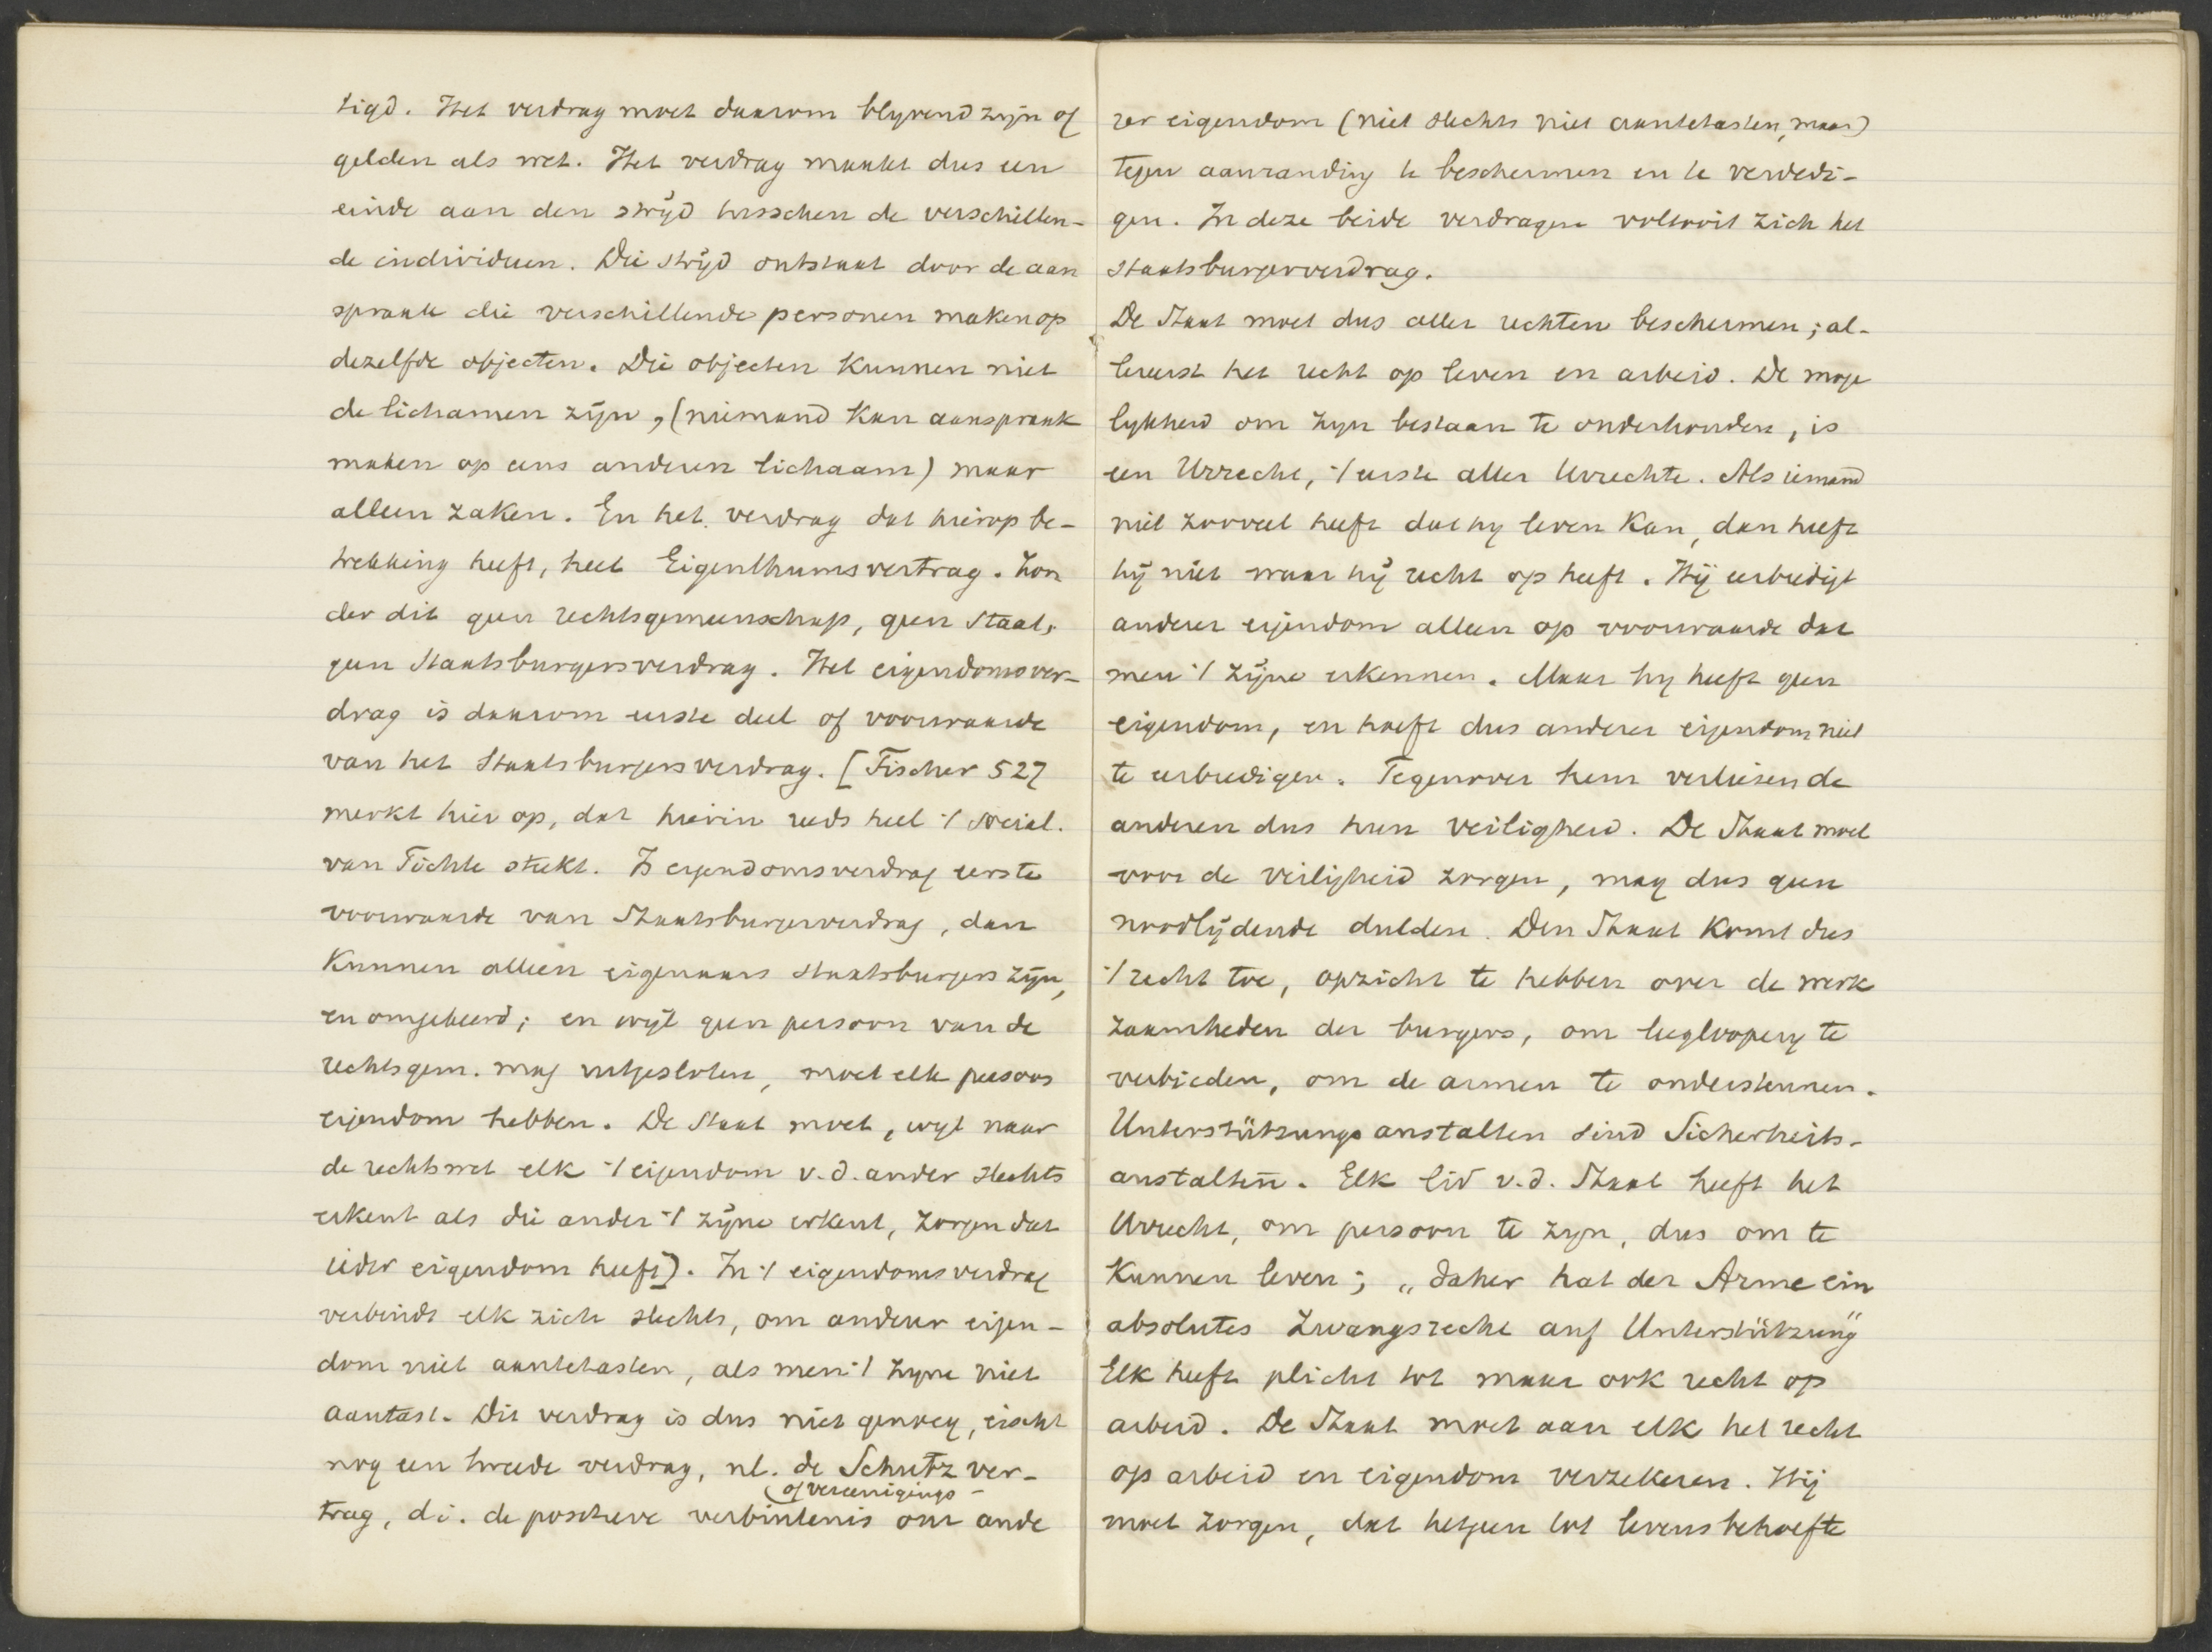 tigd. Het verdrag moet daarom blyvend zijn of
gelden als wet. Het verdrag maakt dus een
einde aan den strijd tusschen de verschillen-
de individuen. Die strijd ontstaat door de aan
spraak die verschillende personen maken op
dezelfde objecten. Die objecten kunnen niet
de lichamen zijn, (niemand kan aanspraak
maken op eens anderen lichaam) maar
alleen zaken. En het verdrag dat hierop be-
trekking heeft, heet Eigenthumsvertrag. Zon
der dit geen rechtsgemeenschap, geen Staat,
geen Staatsburgersverdrag. Het eigendomsver-
drag is daarom eerste deel of voorwaarde
van het Staatsburgersverdrag. [Fischer 527
merkt hier op, dat hierin reeds heel 't social.
van Fichte steekt. Is eigendomsverdrag eerste
voorwaarde van Staatsburgerverdrag, dan
kunnen alleen eigenaars staatsburgers zijn,
en omgekeerd; en wijl geen persoon van de
rechtsgem. mag uitgesloten, moet elk persoon
eigendom hebben. De Staat moet, wijl naar
de rechtswet elk 't eigendom v.d. ander slechts
erkent als die ander 't zijne erkent, zorgen dat
ieder eigendom heeft]. In 't eigendomsverdrag
verbindt elk zich slechts, om anderer eigen-
dom niet aantetasten, als men 't zyne niet
aantast. Dit verdrag is dus niet genoeg, eischt
nog een tweede verdrag, nl. de Schutzver-
(of vereenigings-
trag, d.i. de positieve verbintenis om ande
rer eigendom (niet slechts niet aantetasten, maar)
tegen aanranding te beschermen en te verdedi-
gen. In deze beide verdragen voltooit zich het
staatsburgerverdrag.
De Staat moet dus aller rechten beschermen; al-
lereerst het recht op leven en arbeid. De moge
lykheid om zyn bestaan te onderhouden, is
een Urrecht, 't eerste aller Urrechte. Als iemand
niet zooveel heeft dat hy leven kan, dan heeft
hij niet waar hij recht op heeft. Hij eerbiedigt
anderer eigendom alleen op voorwaarde dat
men 't zijne erkennen. Maar hy heeft geen
eigendom, en hoeft dus anderer eigendom niet
te eerbiedigen. Tegenover hem verliezen de
anderen dus hun veiligheid. De Staat moet
voor de veiligheid zorgen, mag dus geen
noodlijdende dulden. Den Staat komt dus
't recht toe, opzicht te hebben over de werk
zaamheden der burgers, om leeglooperij te
verbieden, om de armen te ondersteunen.
Unterstützungsanstalten sind Sicherheits-
anstalten. Elk lid v.d. Staat heeft het
Urrecht, om persoon te zyn, dus om te
kunnen leven; „daher hat der Arme ein
absolutes Zwangsrecht auf Unterstützung"
Elk heeft plicht tot maar ook recht op
arbeid. De Staat moet aan elk het recht
op arbeid en eigendom verzekeren. Hij
moet zorgen, dat hetgeen tot levensbehoefte